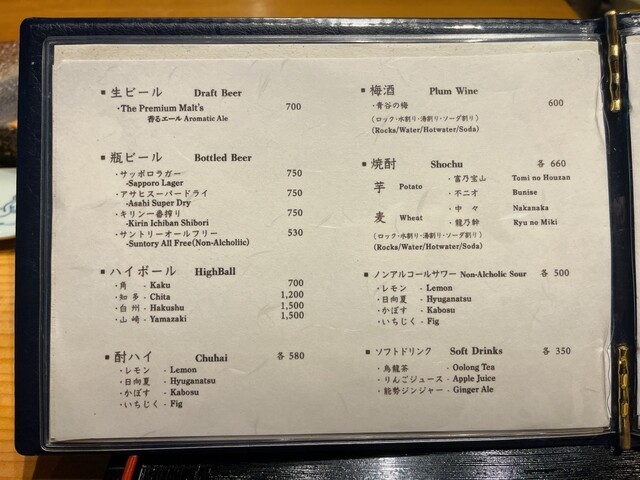 ▪ 生ビール Draft Beer
・The Premium Malt's 700
香るエール Aromatic Ale
▪ 瓶ビール Bottled Beer
・サッポロラガー 750
-Sapporo Lager
・アサヒスーパードライ 750
-Asahi Super Dry
・キリン一番搾り 750
-Kirin Ichiban Shibori
・サントリーオールフリー 530
-Suntory All Free(Non-Alcholiic)
▪ ハイボール HighBall
・角 - Kaku 700
・知多 - Chita 1,200
・白州 - Hakushu 1,500
・山崎 - Yamazaki 1,500
▪ 酎ハイ Chuhai 各 580
・レモン - Lemon
・日向夏 - Hyuganatsu
・かぼす - Kabosu
・いちじく - Fig
▪ 梅酒 Plum Wine
・青谷の梅 600
(ロック・水割り・湯割り・ソーダ割り)
(Rocks/Water/Hotwater/Soda)
▪ 焼酎 Shochu 各 660
芋 Potato ・富乃宝山 Tomi no Houzan
・不二才 Bunise
麦 Wheat ・中々 Nakanaka
・龍乃幹 Ryu no Miki
(ロック・水割り・湯割り・ソーダ割り)
(Rocks/Water/Hotwater/Soda)
▪ ノンアルコールサワー Non-Alcholic Sour 各 500
・レモン - Lemon
・日向夏 - Hyuganatsu
・かぼす - Kabosu
・いちじく - Fig
▪ ソフトドリンク Soft Drinks 各 350
・烏龍茶 - Oolong Tea
・りんごジュース - Apple Juice
・能勢ジンジャー - Ginger Ale